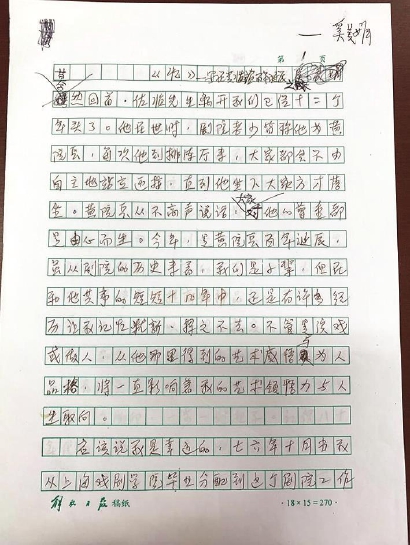 — 奚美娟
第 1 页
然回首,佐临先生离开我们已经十二个
年头了。他在世时,剧院老少皆称他为黄
院长,每次他到排练厅来,大家都会不由
自主地站立而接,直到他坐下大家方才落
坐。黄院长从不高声说话,大家对他的尊重都
是由心而生。今年,是黄院长百年诞辰,
虽从剧院的历史来看,我们是小辈,但在
和他共事的短短十四年中,还是有许多经
历让我记忆犹新、挥之不去。不管是演戏
或做人,从他那里得到的艺术感悟与为人
品格,将一直影响着我的艺术领悟力与人
生取向。
应该说我是幸运的,七六年十月当我
从上海戏剧学院毕业分配到这个剧院工作
解放日报稿纸 ·18×15=270·